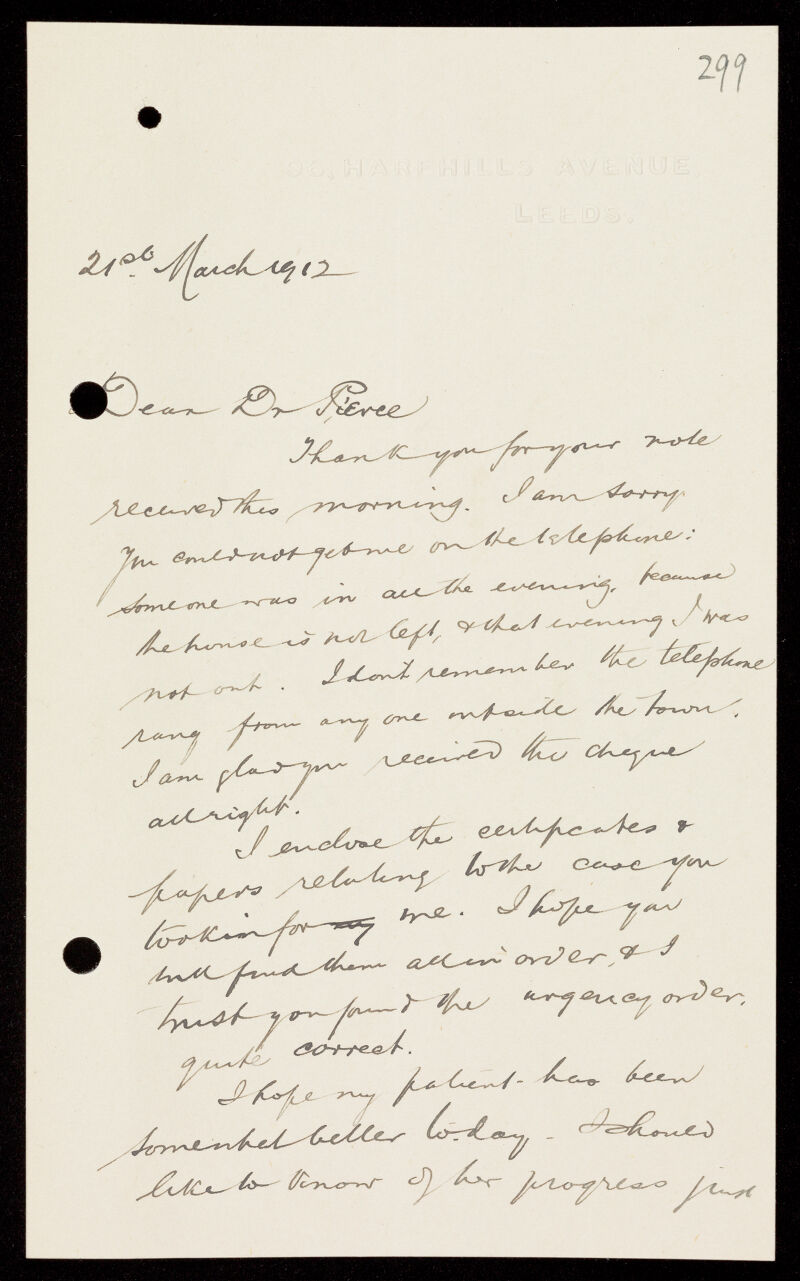 299
96, HAREHILLS AVENUE,
LEEDS.
21st March 1912
Dear Dr Pierce
Thank you for your note
received this morning. I am sorry
you could not get me on the telephone:
someone was in all the evening, because
the house is not left, & that evening I was
not out. I don't remember the telephone
rang from any one outside the town.
I am glad you received the cheque
all right.
I enclose the certificates &
papers relating to the case you
took in for my me. I hope you
will find them all in order, & I
trust you found the urgency order,
quite correct.
I hope my patient has been
somewhat better to-day. I should
like to know of her progress just